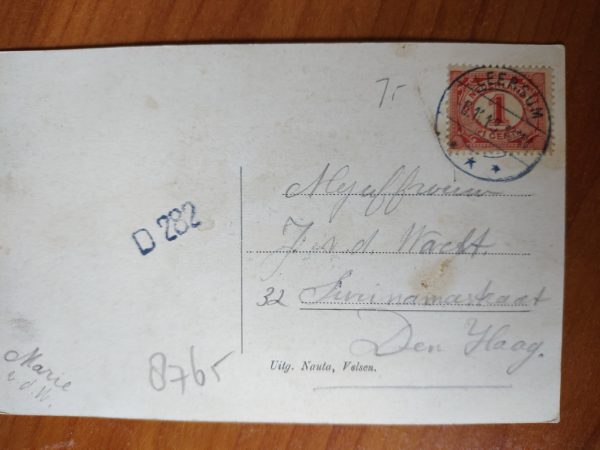 7,-
1
CENT
Mejuffrouw
J. v. d. Wacht.
32 Surinamastraat
Den Haag.
D 282
Marie
v. d. W.
8765
Uitg. Nauta, Velsen.